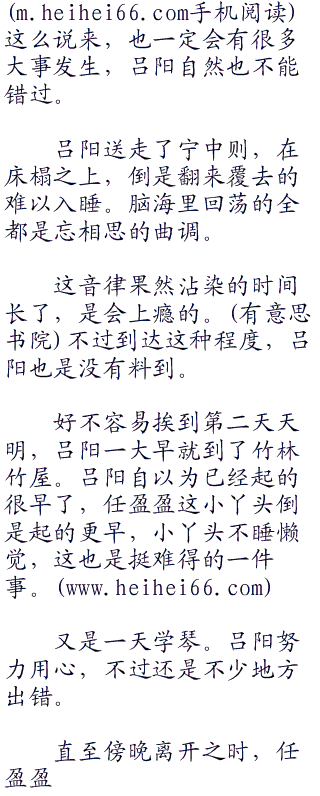 (m.heihei66.com手机阅读)
这么说来，也一定会有很多
大事发生，吕阳自然也不能
错过。
吕阳送走了宁中则，在
床榻之上，倒是翻来覆去的
难以入睡。脑海里回荡的全
都是忘相思的曲调。
这音律果然沾染的时间
长了，是会上瘾的。(有意思
书院)不过到达这种程度，吕
阳也是没有料到。
好不容易挨到第二天天
明，吕阳一大早就到了竹林
竹屋。吕阳自以为已经起的
很早了，任盈盈这小丫头倒
是起的更早，小丫头不睡懒
觉，这也是挺难得的一件
事。(www.heihei66.com)
又是一天学琴。吕阳努
力用心，不过还是不少地方
出错。
直至傍晚离开之时，任
盈盈